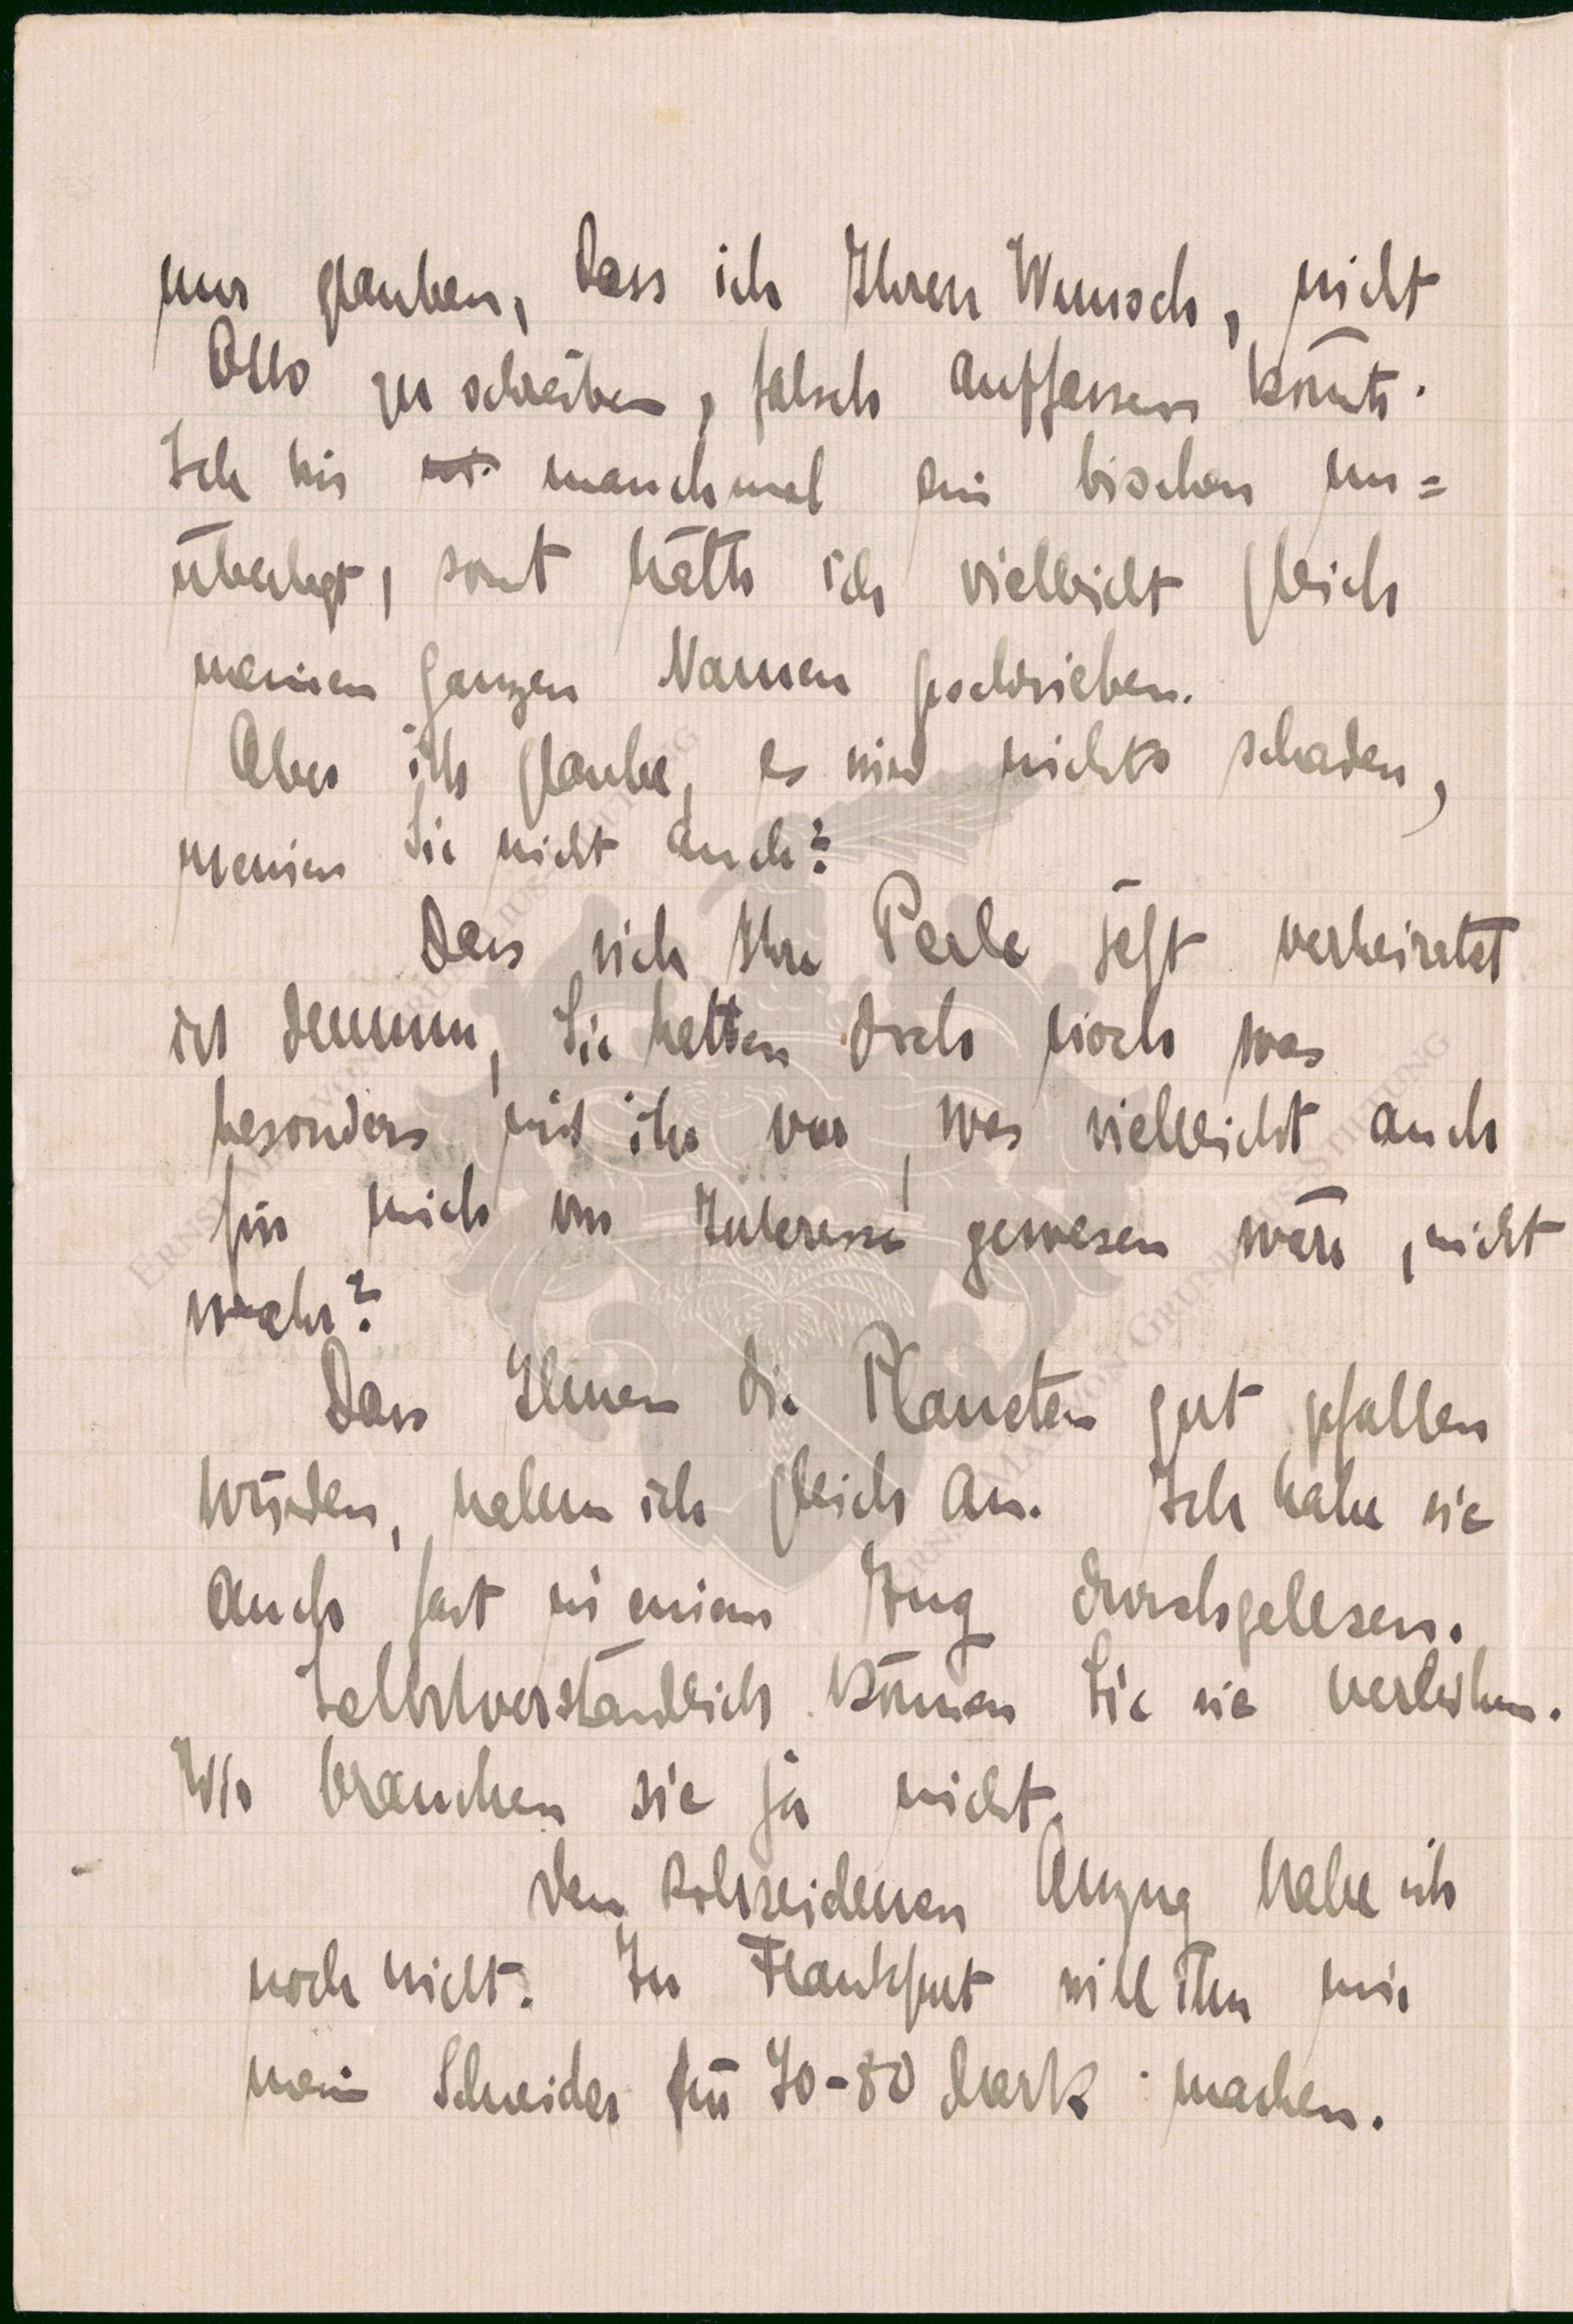 nur glauben, dass ich Ihren Wunsch, nicht
Otto zu schreiben, falsch auffassen könnte.
Ich bin manchmal ein bischen un=
überlegt, sonst hätte ich vielleicht gleich
meinen ganzen Namen geschrieben.
Aber ich glaube, es wird nichts schaden,
meinen Sie nicht auch?
Dass sich Ihre Perle jetzt verheiratet
ist dumm, Sie hatten doch noch was
besonders mit ihr vor, was vielleicht auch
für mich von Interesse gewesen wäre, nicht
wahr?
Dass Ihnen die Planeten gut gefallen
würden, nahm ich gleich an. Ich habe sie
auch fast in einem Zug durchgelesen.
Selbstverständlich können Sie sie verleihen.
Wir brauchen sie ja nicht.
Den rohseidenen Anzug habe ich
noch nicht. In Frankfurt will ihn mir
mein Schneider für 70-80 Mark machen.
ERNST MARLON GRUNDIUS STIFTUNG